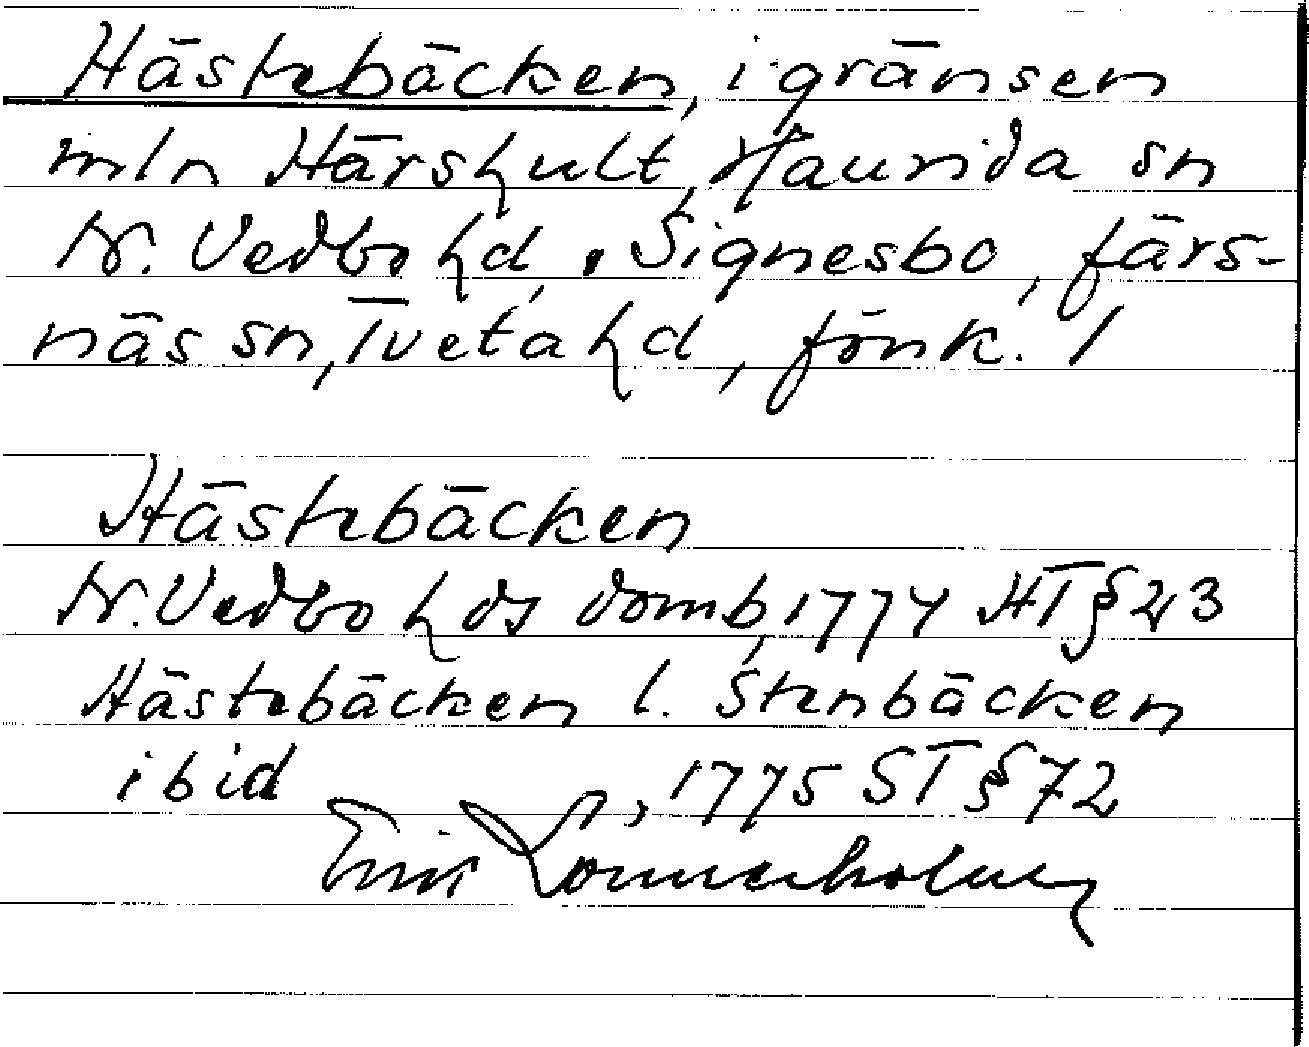 Hästebäcken, i gränsen
mln Härshult, Haurida sn
N. Vedbo hd, o. Signesbo, Järs-
näs sn, Tveta hd, Jönk. l
Hästebäcken
N. Vedbo hds domb, 1774 HT § 23
Hästebäcken l. Stenbäcken
ibid , 1775 ST § 72
Erik Sonnerholm